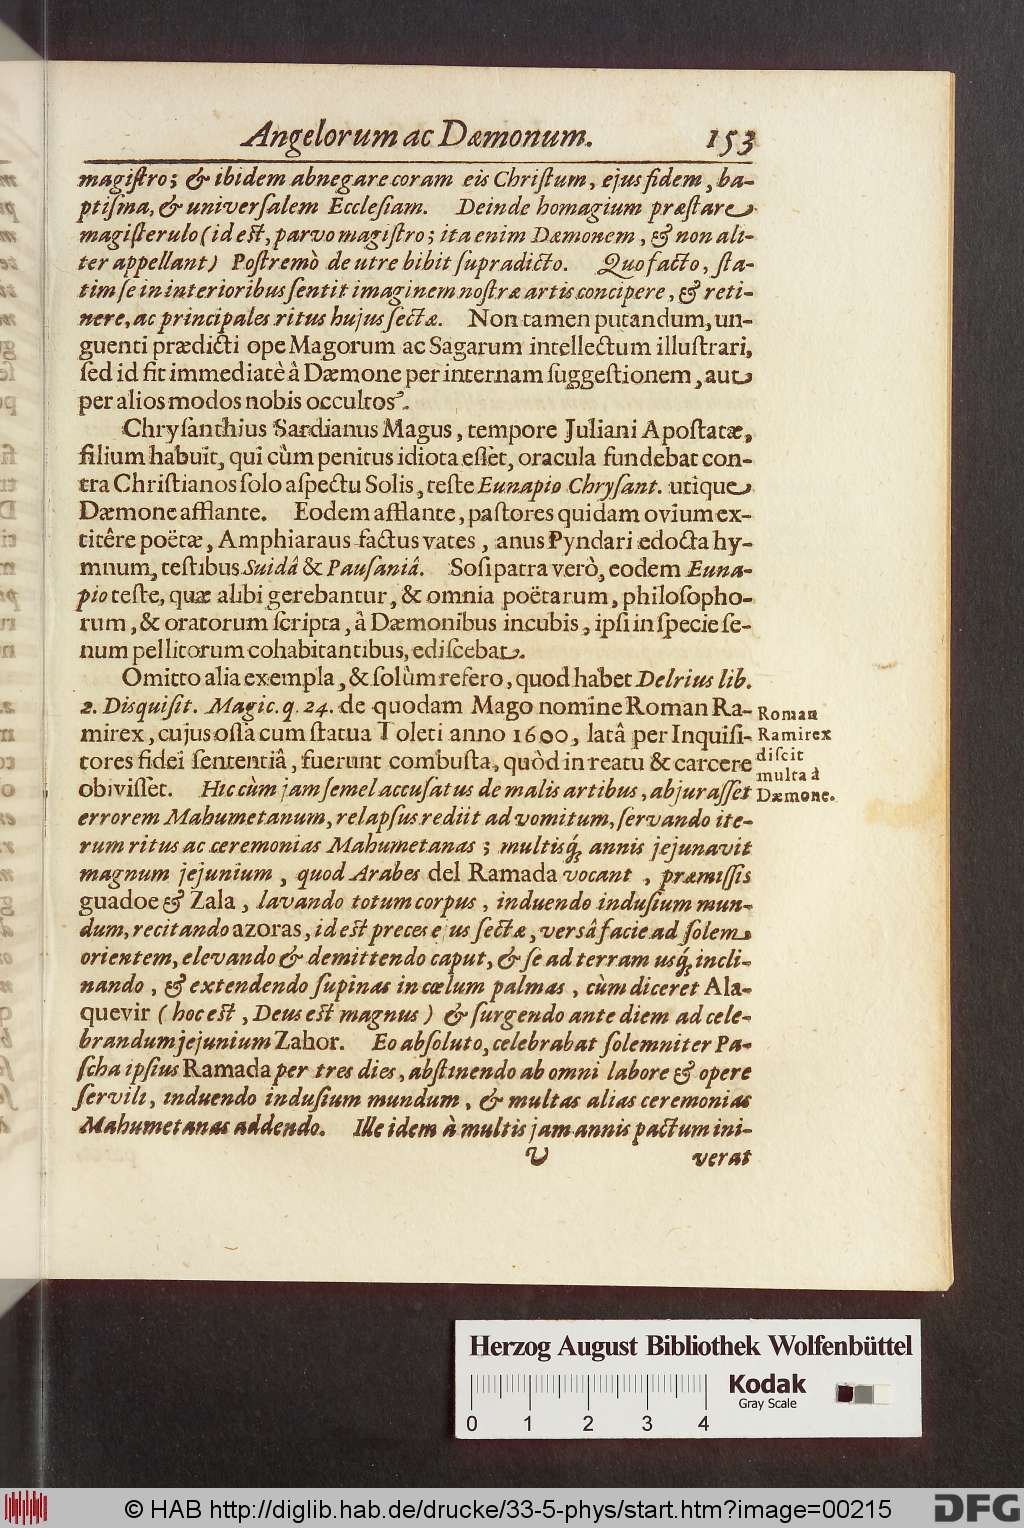 Angelorum ac Dæmonum. 153
magiſtro; & ibidem abnegare coram eis Chriſtum, ejus fidem, ba-
ptiſma, & univerſalem Eccleſiam. Deinde homagium præſtare
magiſterulo (id eſt, parvo magiſtro; ita enim Dæmonem, & non ali-
ter appellant) Poſtremò de utre bibit ſupradicto. Quo facto, ſta-
tim ſe in interioribus ſentit imaginem noſtræ artis concipere, & reti-
nere, ac principales ritus hujus ſectæ. Non tamen putandum, un-
guenti prædicti ope Magorum ac Sagarum intellectum illuſtrari,
ſed id fit immediatè â Dæmone per internam ſuggeſtionem, aut
per alios modos nobis occultos.
Chryſanthius Sardianus Magus, tempore Juliani Apoſtatæ,
filium habuit, qui cùm penitus idiota eſſet, oracula fundebat con-
tra Chriſtianos ſolo aſpectu Solis, teſte Eunapio Chryſant. utique
Dæmone afflante. Eodem afflante, paſtores quidam ovium ex-
titêre poëtæ, Amphiaraus factus vates, anus Pyndari edocta hy-
mnum, teſtibus Suidâ & Pauſaniâ. Soſipatra verò, eodem Euna-
pio teſte, quæ alibi gerebantur, & omnia poëtarum, philoſopho-
rum, & oratorum ſcripta, à Dæmonibus incubis, ipſi in ſpecie ſe-
num pellitorum cohabitantibus, ediſcebat.
Omitto alia exempla, & ſolùm refero, quod habet Delrius lib.
2. Diſquiſit. Magic. q. 24. de quodam Mago nomine Roman Ra-
mirex, cujus oſſa cum ſtatua Toleti anno 1600, latâ per Inquiſi-
tores fidei ſententiâ, fuerunt combuſta, quòd in reatu & carcere
obiviſſet. Hic cùm jam ſemel accuſatus de malis artibus, abjuraſſet
errorem Mahumetanum, relapſus rediit ad vomitum, ſervando ite-
rum ritus ac ceremonias Mahumetanas; multisq́; annis jejunavit
magnum jejunium, quod Arabes del Ramada vocant, præmiſſis
guadoe & Zala, lavando totum corpus, induendo induſium mun-
dum, recitando azoras, id eſt preces ejus ſectæ, verſâ facie ad ſolem
orientem, elevando & demittendo caput, & ſe ad terram usq́; incli-
nando, & extendendo ſupinas in cœlum palmas, cùm diceret Ala-
quevir (hoc eſt, Deus eſt magnus) & ſurgendo ante diem ad cele-
brandum jejunium Zahor. Eo abſoluto, celebrabat ſolemniter Pa-
ſcha ipſius Ramada per tres dies, abſtinendo ab omni labore & opere
ſervili, induendo induſium mundum, & multas alias ceremonias
Mahumetanas addendo. Ille idem à multis jam annis pactum ini-
V verat
Roman
Ramirex
diſcit
multa â
Dæmone.
Herzog August Bibliothek Wolfenbüttel
Kodak
Gray Scale
0 1 2 3 4
© HAB http://diglib.hab.de/drucke/33-5-phys/start.htm?image=00215
DFG